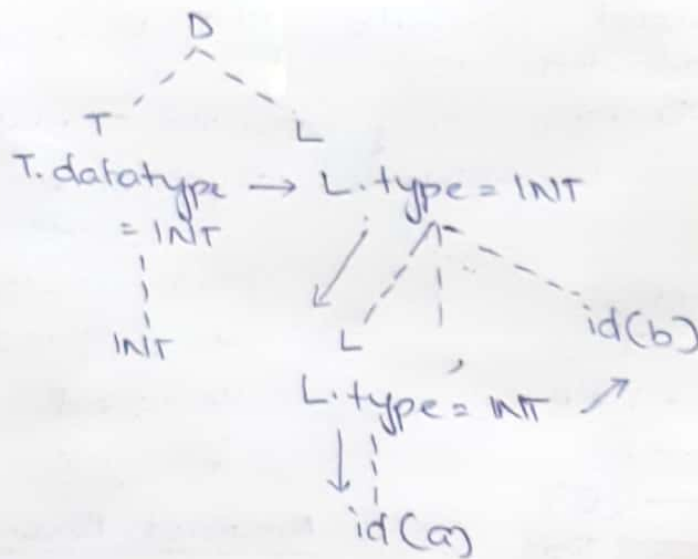 D
T L
T.datatype → L.type = INT
= INT
INT
L , id(b)
L.type = INT
id(a)